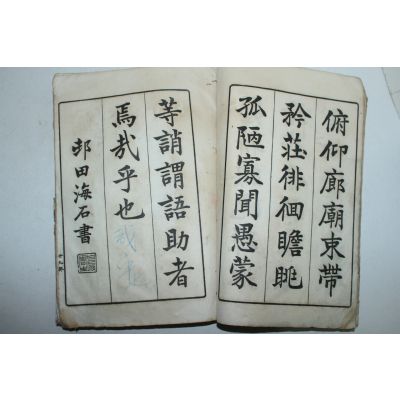 俯仰廊廟束帶
矜莊徘徊瞻眺
孤陋寡聞愚蒙
等誚謂語助者
焉哉乎也
邨田海石書